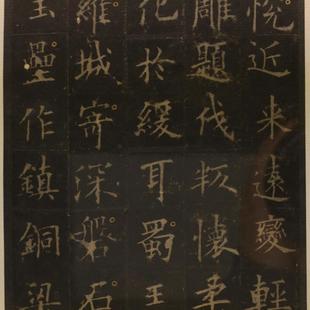 悅近來遠變輕
雕題伐叛懷柔
化於緩耳蜀王
維城寄深磐石
玉壘作鎮銅梁